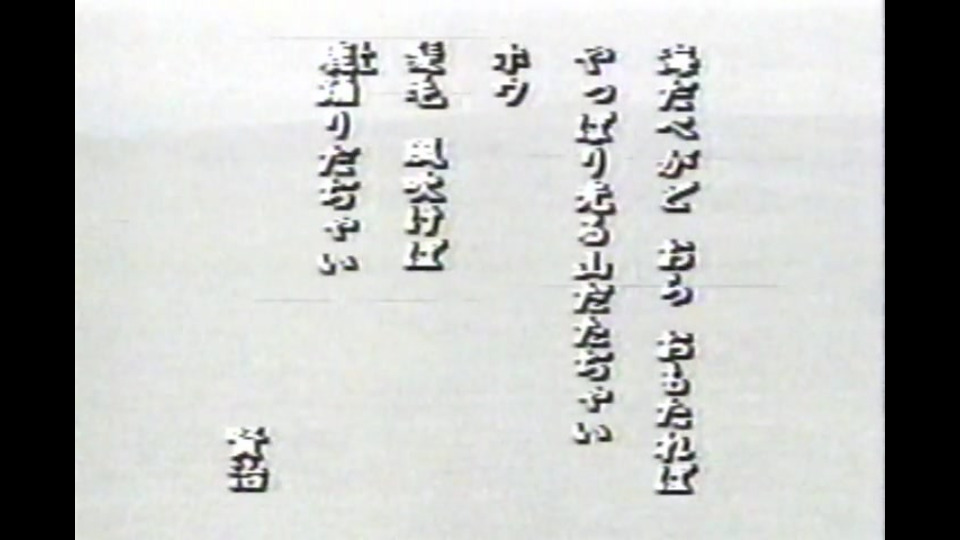 海だべがど おら おもたれば
やっぱり光る山だたぢゃい
ホウ
髪毛 風吹けば
鹿踊りだぢゃい
賢治